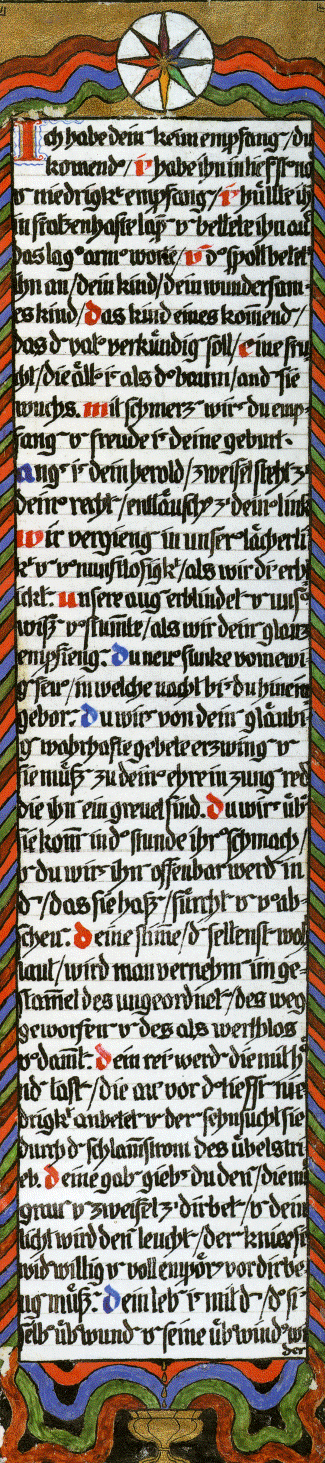 Ich habe dein' keim empfang'/du
kom̄end'/ich habe ihn in tiefst' not
v' niedrigk't empfang'/ich hüllte ih
in fratzenhafte lap' v' bettete ihn auf
das lag' arm' worte/und d' spott betet'
ihn an/dein kind/dein wundersam-
es kind/das kind eines kom̄end'/
das d' vat' verkündig' soll/eine fru
cht/die ält' ist als d' baum/auf d' sie
wuchs. mit schmerz' wirst du emp-
fang' v' freude ist deine geburt.
angst ist dein herold/zweifel steht z'
dein' recht'/enttäuschg z' dein' link'
wir vergieng' in unser' lächerli
k't v' v'nunftlosigk't/als wir dich erb
ickt'. unsere aug' erblindet' v' uns'
wiß' v'stum̄te/als wir dein' glanz
empfieng'. du neu' funke von ewi
g' feu'/in welche nacht bist du hinein
gebor'. du wirst von dein' gläubi
g' wahrhafte gebete erzwing' v'
sie müß' zu dein' ehre in zung' red'
die ihn' ein greuel sind. du wirst üb'
sie kom̄' in d' stunde ihr' schmach/
v' du wirst ihn' offenbar werd' in
d'/das sie haß'/fürcht' v' v'ab-
scheu'. deine stim̄e/d' seltenst' wohl
laut/wird man vernehm' im ge-
stam̄el des ungeordnet'/des weg
geworfen' v' des als werthlos
v'dam̄t'. dein reich werd' die mit h'
nd' tast'/die auch vor d' tiefst' nie
drigk't anbetet' v' der' sehnsucht sie
durch d' schlam̄strom des übels tri
eb. deine gab' giebst du den'/die mit
grau' v' zweifel z' dir bet'/v' dein
licht wird den' leucht'/der' kniee si
widwillig v' voll empör' vor dir be
ug' müß'. dein leb' ist mit d'/d' si
selb' üb'wund' v' seine üb'windg wi
der